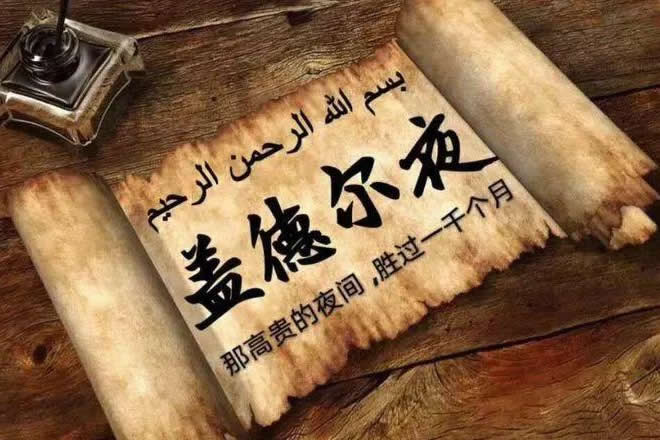 بسم الله الرحمن الرحيم
盖德尔夜
那高贵的夜间,胜过一千个月